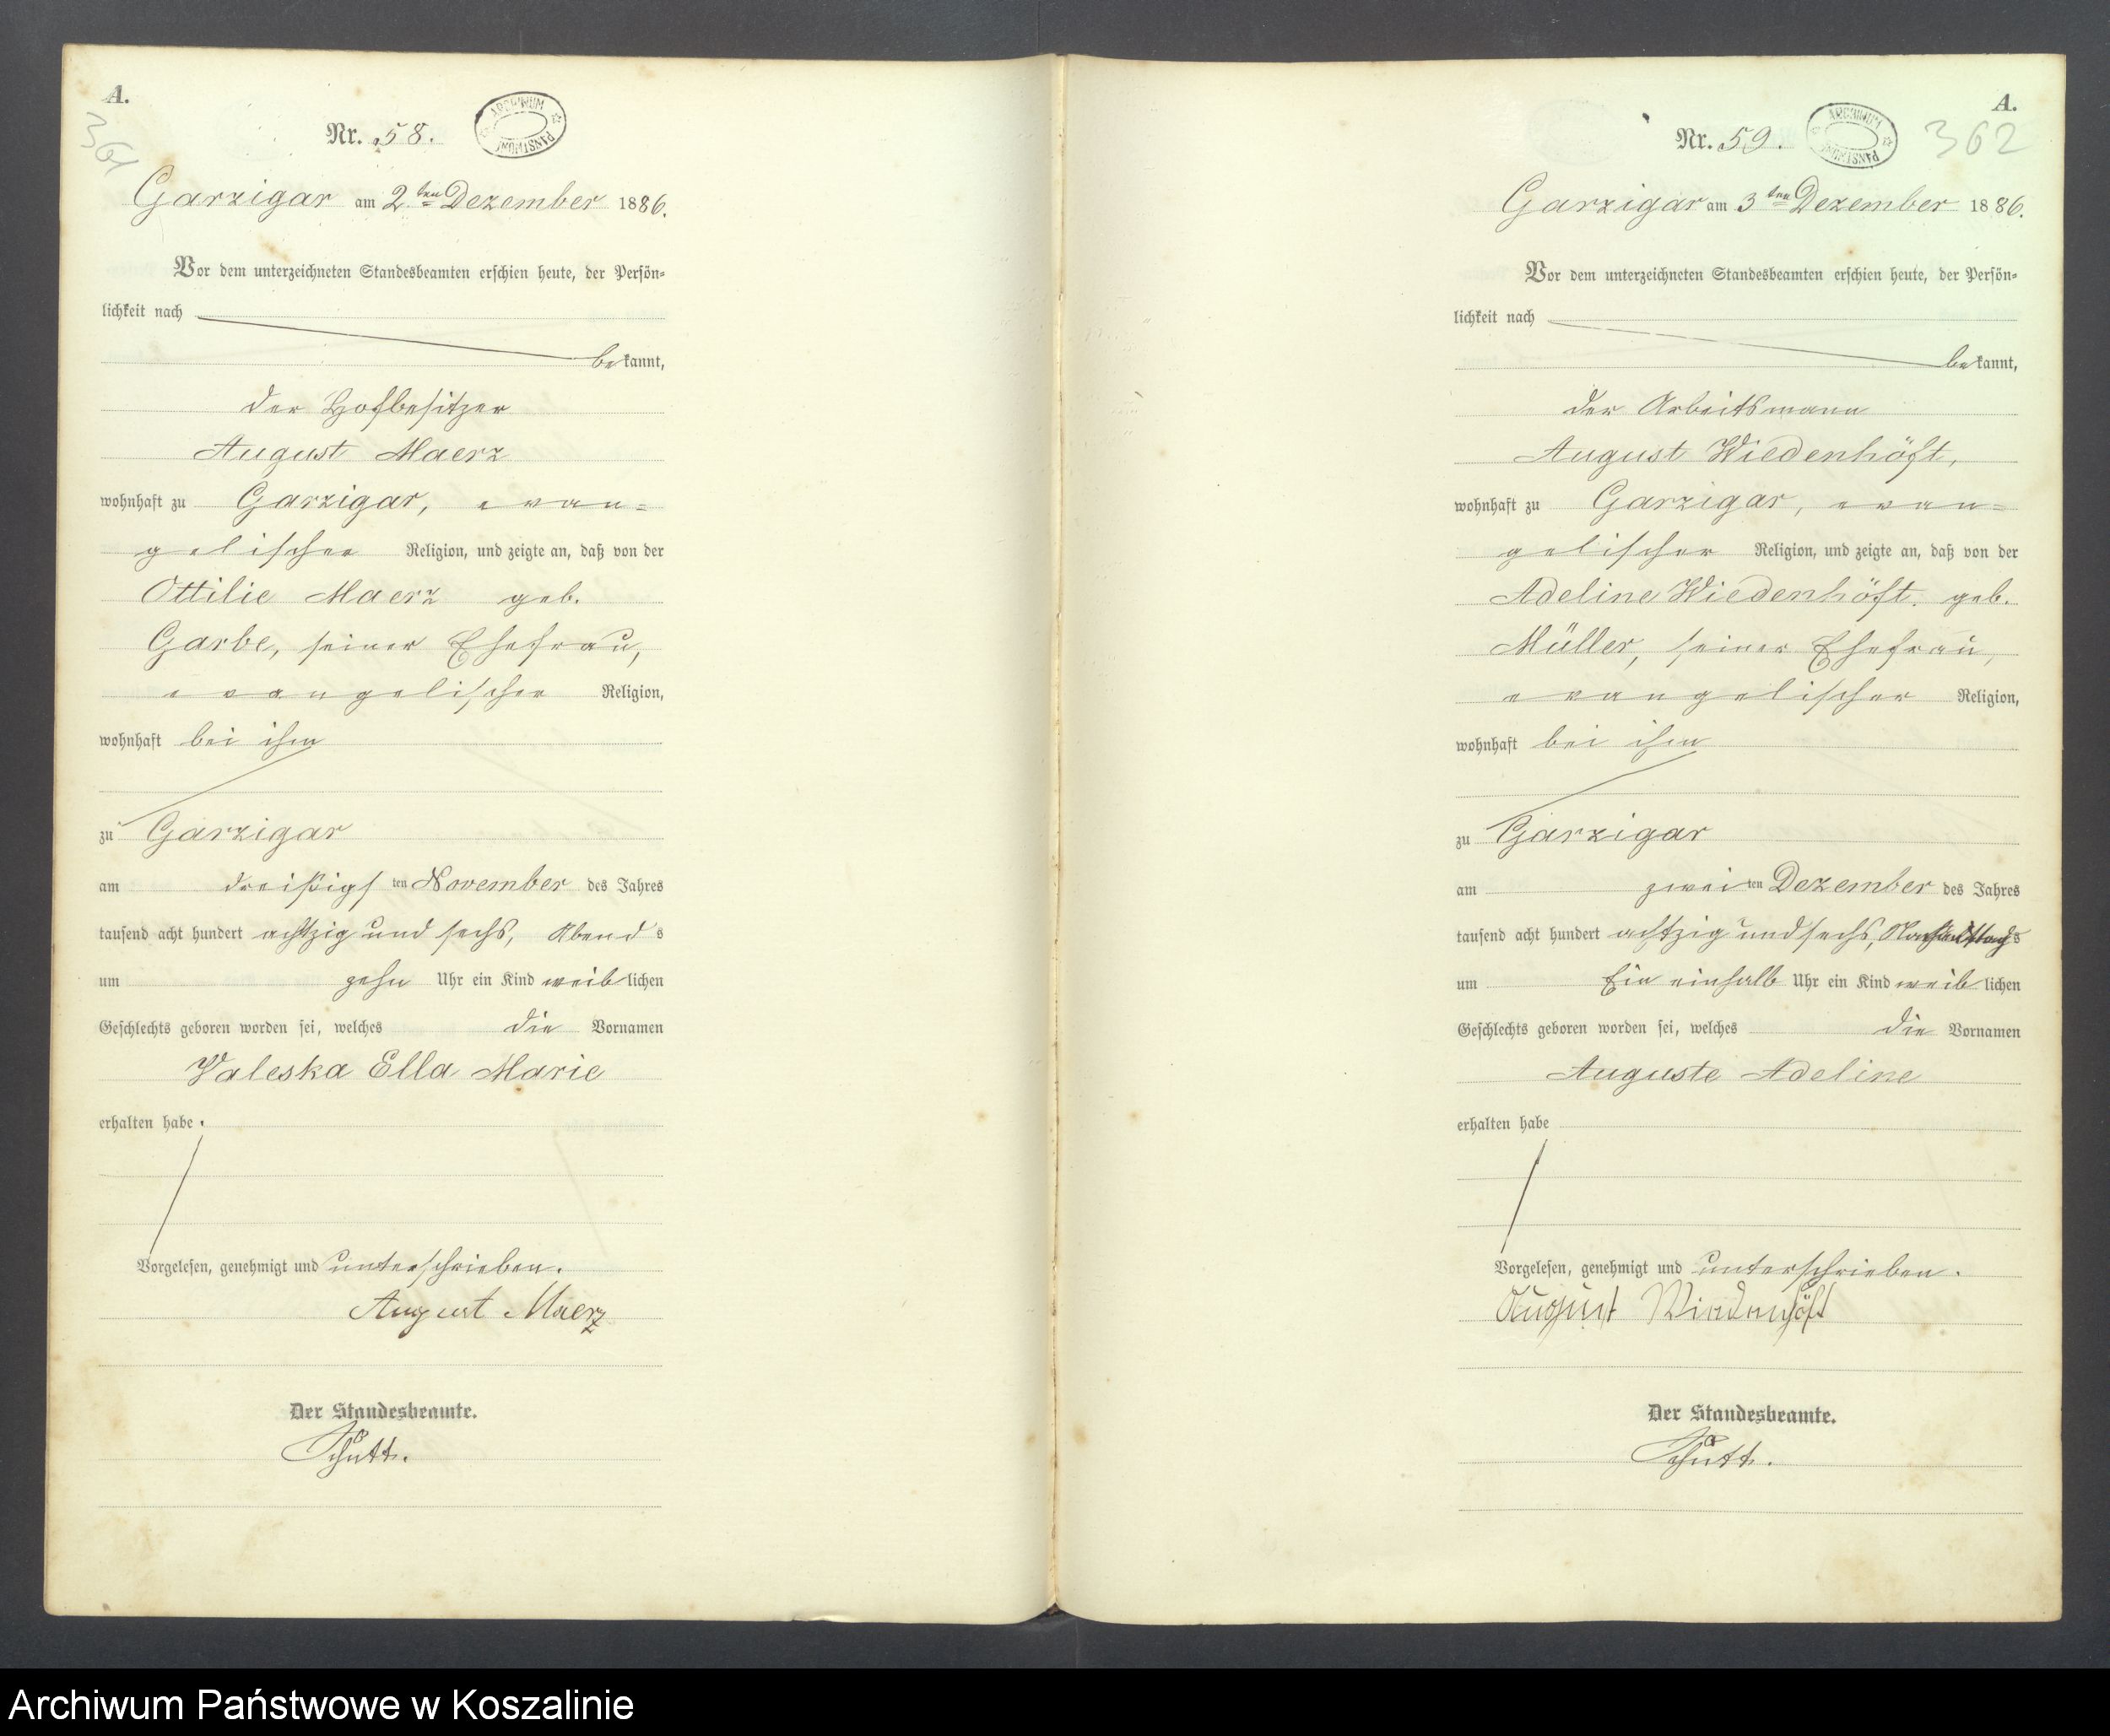 A.
361
Nr. 58.
ARCHIWUM PAŃSTWOWE
Garzigar am 2ten Dezember 1886.
Vor dem unterzeichneten Standesbeamten erschien heute, der Persön-
lichkeit nach
bekannt,
der Hofbesitzer
August Maerz
wohnhaft zu Garzigar, evan-
gelischer Religion, und zeigte an, daß von der
Ottilie Maerz geb.
Garbe, seiner Ehefrau,
evangelischer Religion,
wohnhaft bei ihm
zu Garzigar
am dreißigsten November des Jahres
tausend acht hundert achtzig und sechs, Abends
um zehn Uhr ein Kind weiblichen
Geschlechts geboren worden sei, welches die Vornamen
Valeska Ella Marie
erhalten habe.
Vorgelesen, genehmigt und unterschrieben.
August Maerz
Der Standesbeamte.
Schütt.
A.
362
Nr. 59.
ARCHIWUM PAŃSTWOWE
Garzigar am 3ten Dezember 1886.
Vor dem unterzeichneten Standesbeamten erschien heute, der Persön-
lichkeit nach
bekannt,
der Arbeitsmann
August Wiedenhöft,
wohnhaft zu Garzigar, evan-
gelischer Religion, und zeigte an, daß von der
Adeline Wiedenhöft geb.
Müller, seiner Ehefrau,
evangelischer Religion,
wohnhaft bei ihm
zu Garzigar
am zweiten Dezember des Jahres
tausend acht hundert achtzig und sechs, Nachmittags
um Ein einhalb Uhr ein Kind weiblichen
Geschlechts geboren worden sei, welches die Vornamen
Auguste Adeline
erhalten habe
Vorgelesen, genehmigt und unterschrieben.
August Wiedenhöft
Der Standesbeamte.
Schütt.
Archiwum Państwowe w Koszalinie